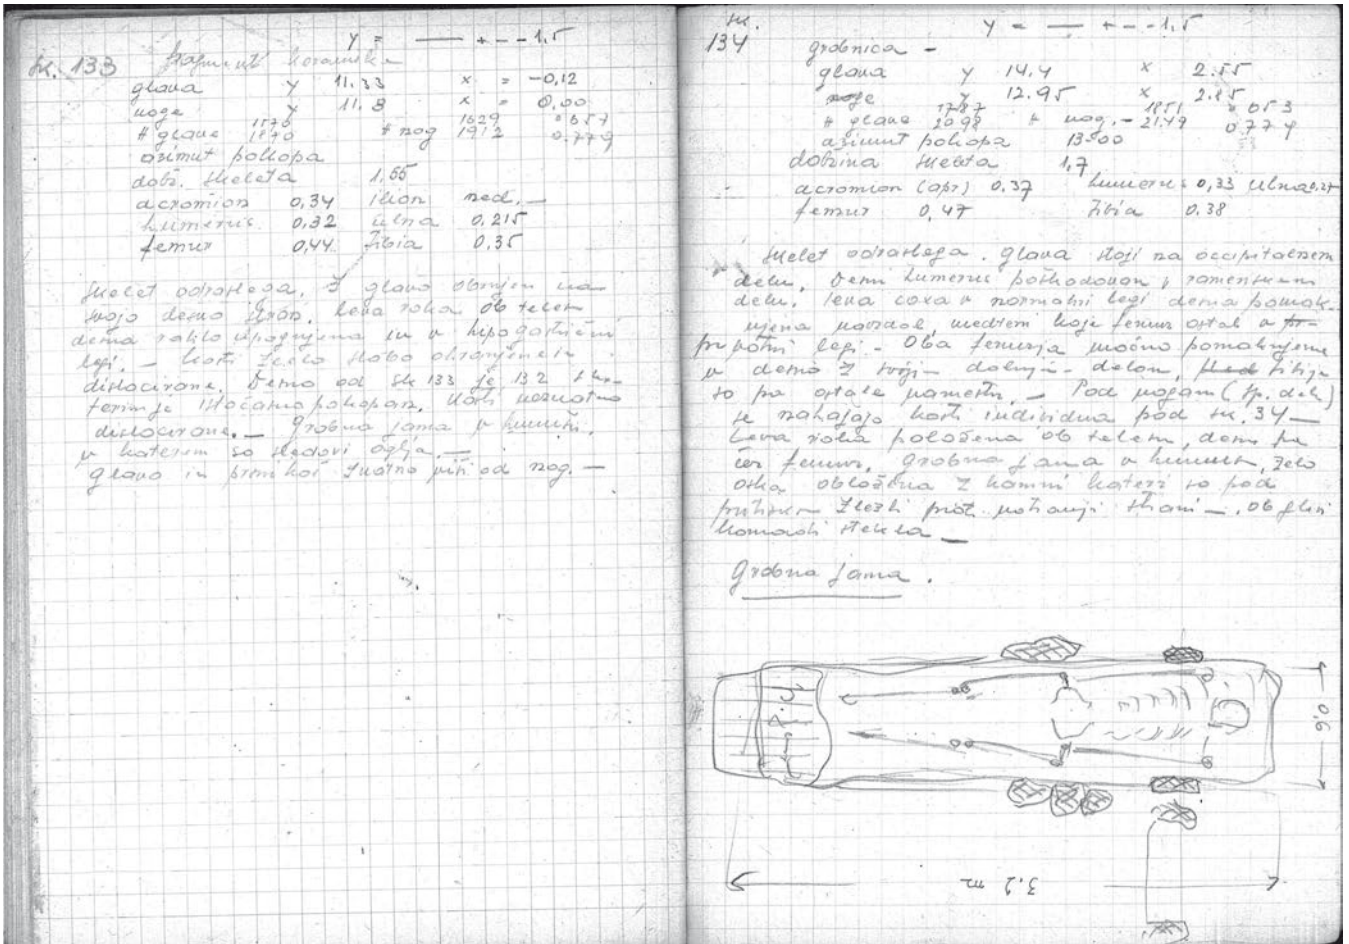 y = — + - - 1,5
sk. 133 fragmenti keramike
glava y 11.33 x = -0,12
noge y 11.8 x = 0.00
1576 1629 0.657
# glave 1870 # nog 1912 0.779
azimut pokopa
dolž. skeleta 1,55
acromion 0,34 ilion ned. -
humerus 0,32 ulna 0,215
femur 0,44 tibia 0,35
skelet odraslega. Z glavo obrnjen na
svojo desno stran. leva roka ob telesu
desna rahlo upognjena in v hipogastrični
legi. - Kosti zelo slabo ohranjene in
dislocirane. Desno od sk 133 je 132 s
istočasno pokopan. Kosti neznatno
dislocirane. - Grobna jama v humusu.
v katerem so sledovi oglja. -
glava in prsni koš znatno višji od nog. -
sk.
134 y = — + - - 1,5
grobnica -
glava y 14.4 x 2.55
noge y 12.95 x 2.85
1787 1851 053
# glave 2098 # nog. - 2149 0.774
azimut pokopa 13500
dolžina skeleta 1,7
acromion (apr) 0.37 humerus 0,33 ulna 0.27
femur 0,47 tibia 0.38
skelet odraslega. glava stoji na occipitalnem
delu. Desni humerus poškodovan v ramenskem
delu. leva coxa v normalni legi desna pomak-
njena navzdol, medtem ko je femur ostal v pr-
prvotni legi - Oba femurja močno pomaknjena
v desno z svojim dolnjim delom, tibije
so pa ostale na mestu. - Pod nogami (sp. del)
se nahajajo kosti individua pod sk. 34 -
Leva roka položena ob telesu, desna pa
čez femur. Grobna jama v humusu, zelo
ozka obložena z kamni kateri so pod
pritiskom zlezli proti notranji strani -. ob glavi
komadi stekla -
Grobna jama.
0,6
3.2 m